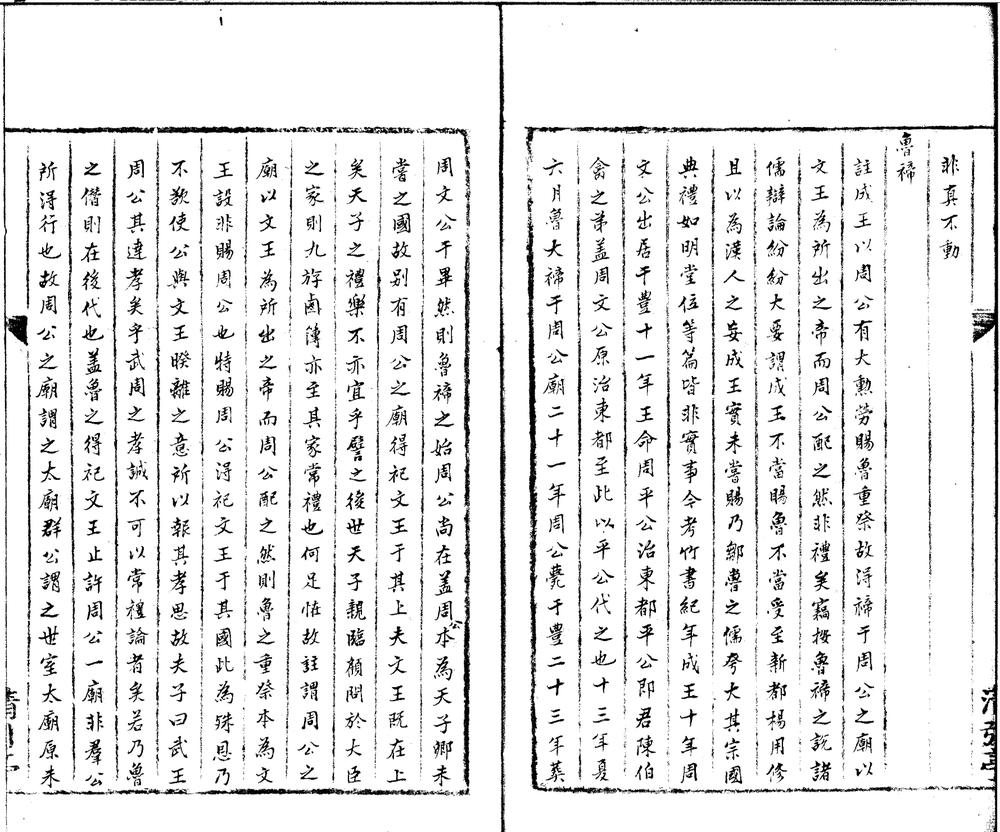 非真不動
魯禘
註成王以周公有大勲勞賜魯重祭故得禘于周公之廟以
文王為所出之帝而周公配之然非禮矣竊按魯禘之説諸
儒辯論紛紛大要謂成王不當賜魯不當受至新都楊用修
且以為漢人之妄成王實未嘗賜乃鄒魯之儒夸大其宗國
典禮如明堂位等篇皆非實事今考竹書紀年成王十年周
文公出居于豊十一年王命周平公治東都平公即君陳伯
禽之弟盖周文公原治東都至此以平公代之也十三年夏
六月魯大禘于周公廟二十一年周公薨于豊二十三年葬
周文公于畢然則魯禘之始周公尚在盖周公本為天子卿未
嘗之國故别有周公之廟得祀文王于其上夫文王既在上
矣天子之禮樂不亦宜乎譬之後世天子親臨顧問於大臣
之家則九斿鹵簿亦至其家常禮也何足怪故註謂周公之
廟以文王為所出之帝而周公配之然則魯之重祭本為文
王設非賜周公也特賜周公得祀文王于其國此為殊恩乃
不欲使公與文王暌離之意所以報其孝思故夫子曰武王
周公其達孝矣乎武周之孝誠不可以常禮論者矣若乃魯
之僭則在後代也盖魯之得祀文王止許周公一廟非羣公
所得行也故周公之廟謂之太廟群公謂之世室太廟原未